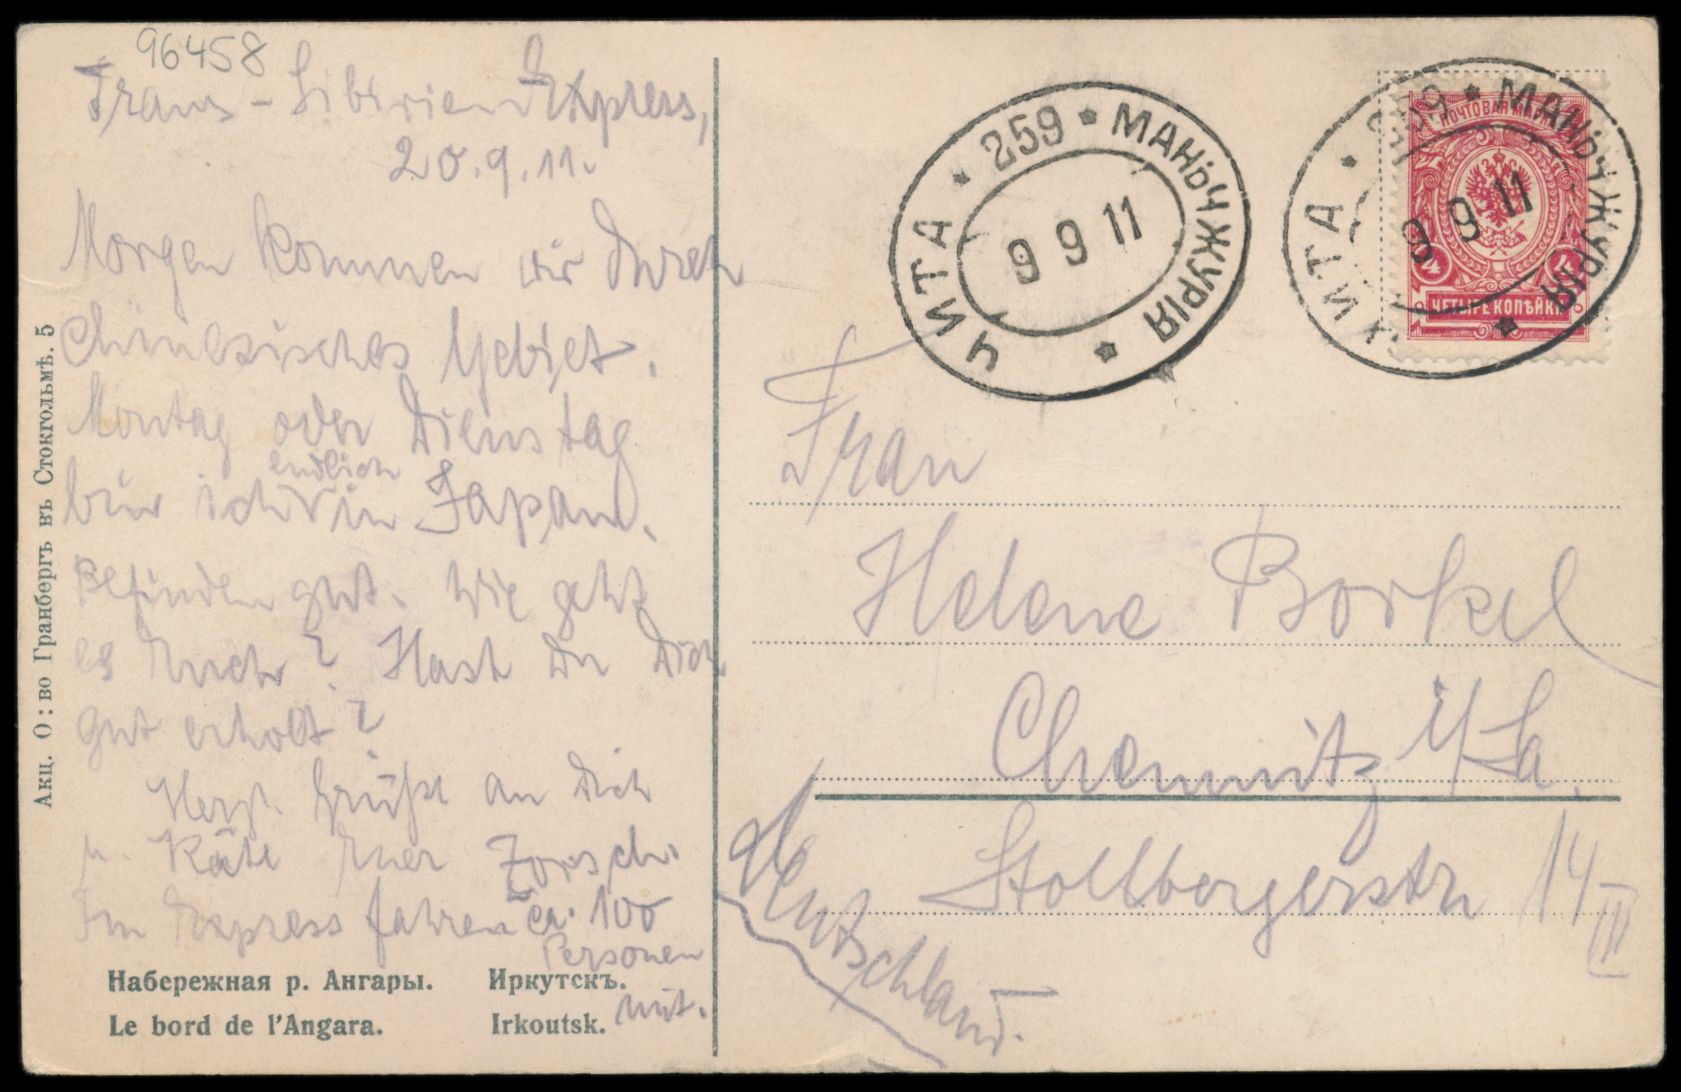 96458
Trans-Sibirien Express,
20.9.11.
Morgen kommen wir durch
Chinesisches Gebiet.
Montag oder Dienstag
bin ich endlich in Japan.
Befinden gut. Wie geht
es Euch? Hast Du Dich
gut erholt?
Herzl. Grüße an Dich
u. Käte Euer
Im Express fahren ca. 100
Personen
mit.
Набережная р. Ангары. Иркутскъ.
Le bord de l'Angara. Irkoutsk.
Акц. О:во Гранбергъ въ Стокгольмѣ. 5
ЧИТА * 259 * МАНЬЧЖУРІЯ *
9 9 11
ЧИТА * 259 * МАНЬЧЖУРІЯ *
9 9 11
ПОЧТОВАЯ МАРКА
4 4
ЧЕТЫРЕ КОПѢЙКИ
Frau
Helene Borkel
Chemnitz i/Sa.
Stollbergerstr 14 III
Deutschland.